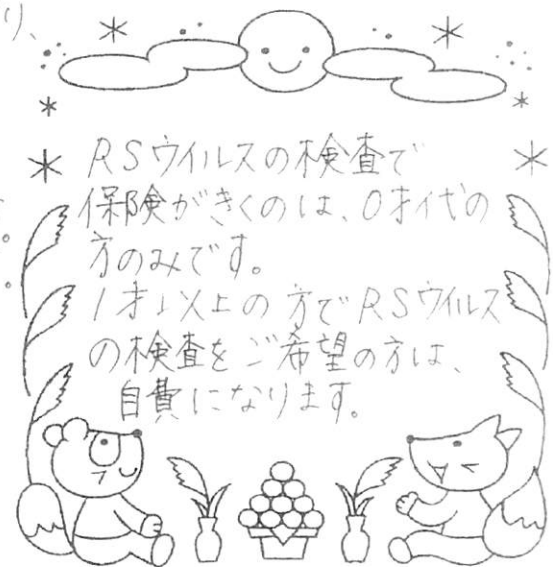 り、
RSウイルスの検査で
保険がきくのは、0才代の
方のみです。
1才以上の方でRSウイルス
の検査をご希望の方は、
自費になります。